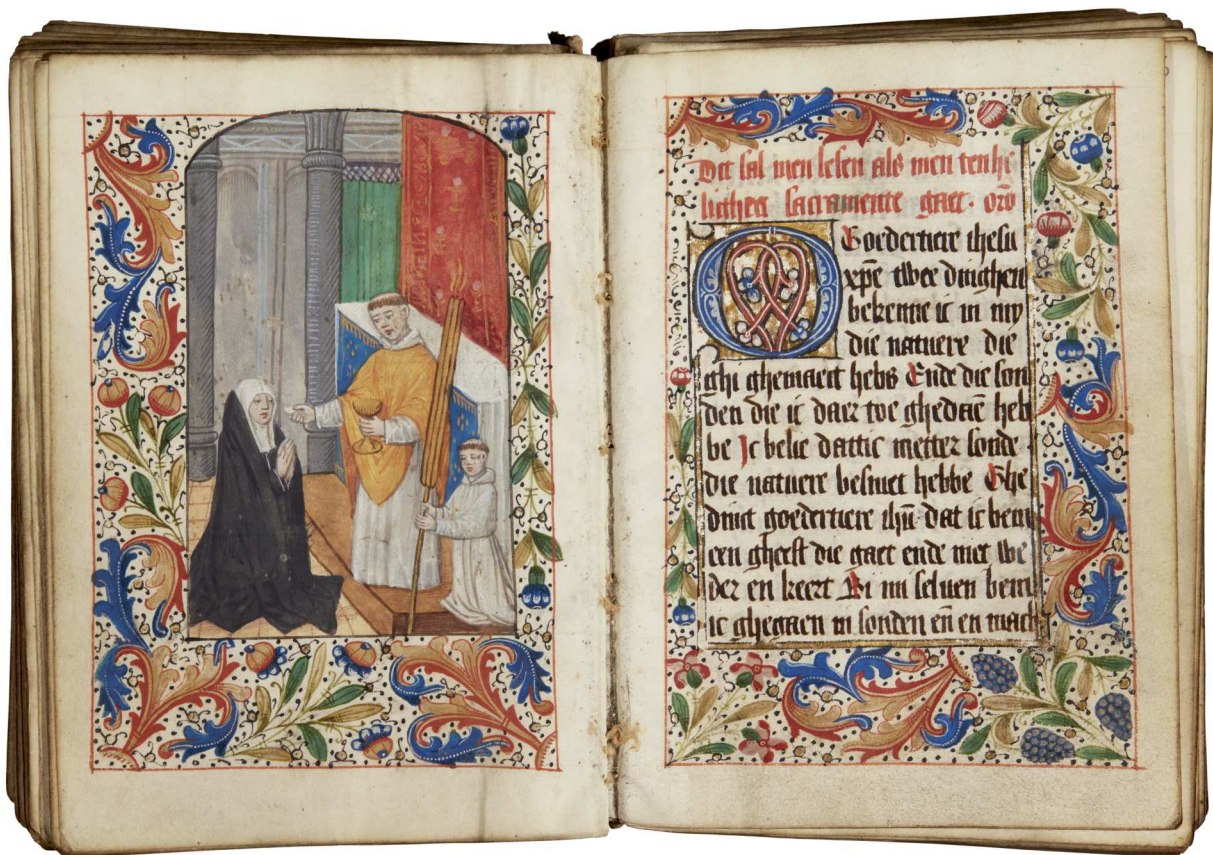 Dit sal men lesen als men ten he
lighen sacramente gaet. oro
O Goedertiere ihesu
xpe twee dinghen
bekenne ic in my
die natuere die
ghi ghemaect hebs Ende die son
den die ic daer toe ghedaen heb
be Ic belie dattic metter sonde
die natuere besmet hebbe Ghe
dinct goedertiere ihu dat ic bem
een gheest die gaet ende niet we
der en keert Bi mi seluen bem
ic ghegaen in sonden en en mach